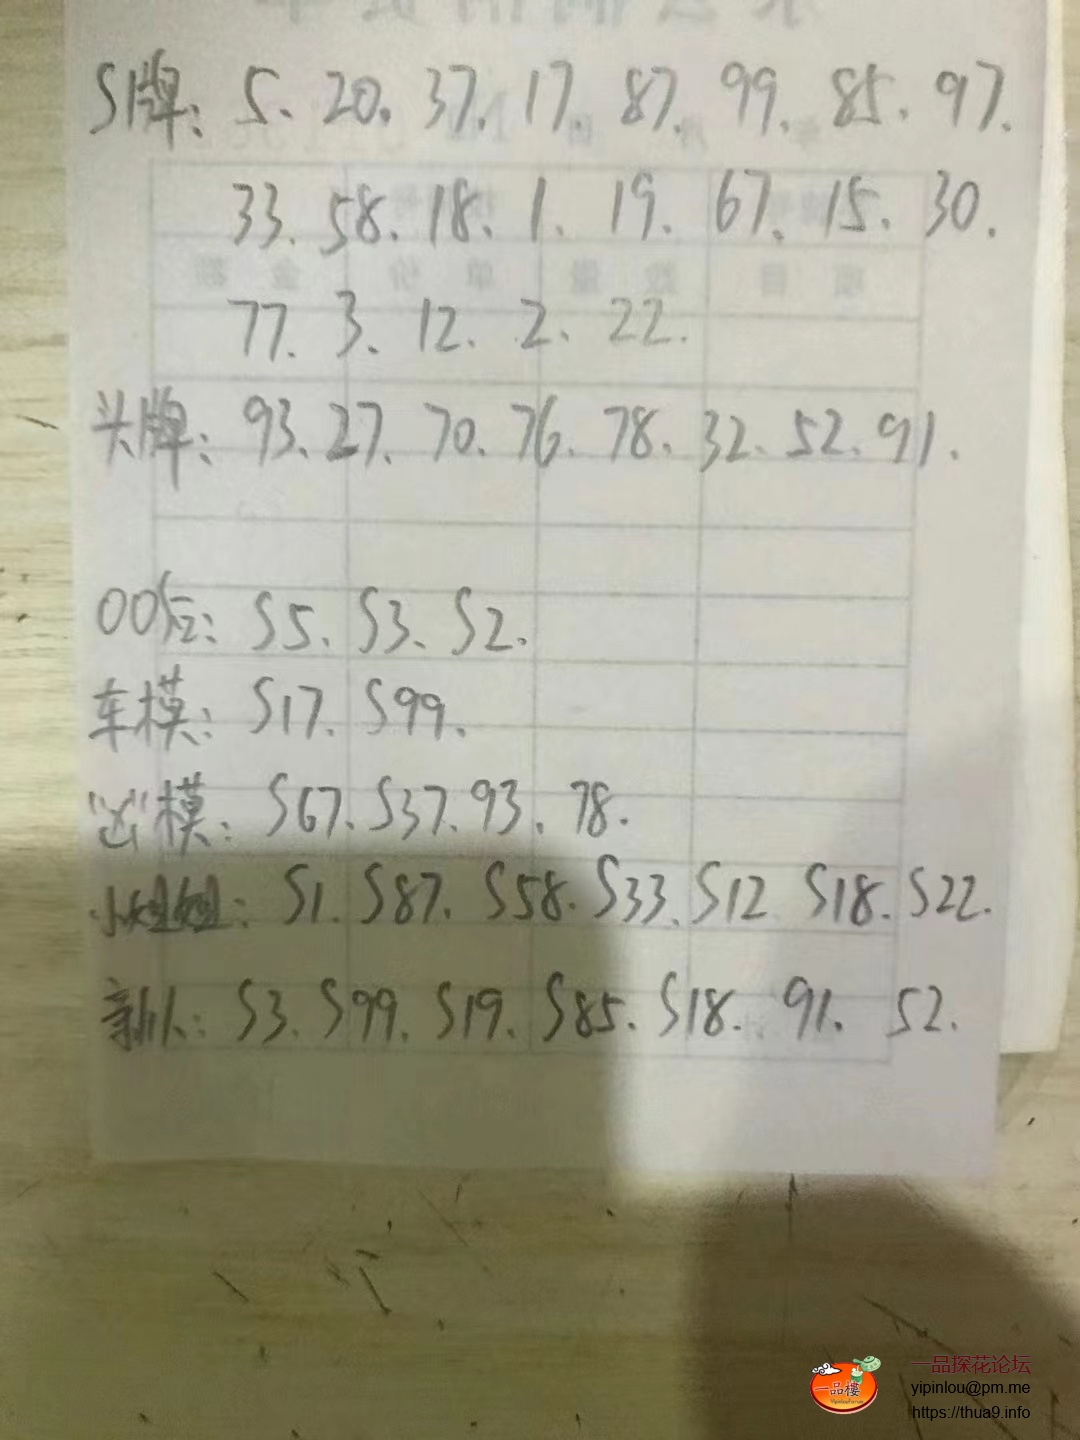 S牌: 5、20、37、17、87、99、85、97.
33、58、18、1、19、67、15、30.
77、3、12、2、22.
头牌: 93、27、70、76、78、32、52、91.
00后: S5、S3、S2.
车模: S17、S99.
"凶"模: S67、S37、93、78.
小姐姐: S1、S87、S58、S33、S12 S18、S22.
新人: S3、S99、S19、S85、S18、91、52.
一品楼
一品探花论坛
yipinlou@pm.me
https://thua9.info